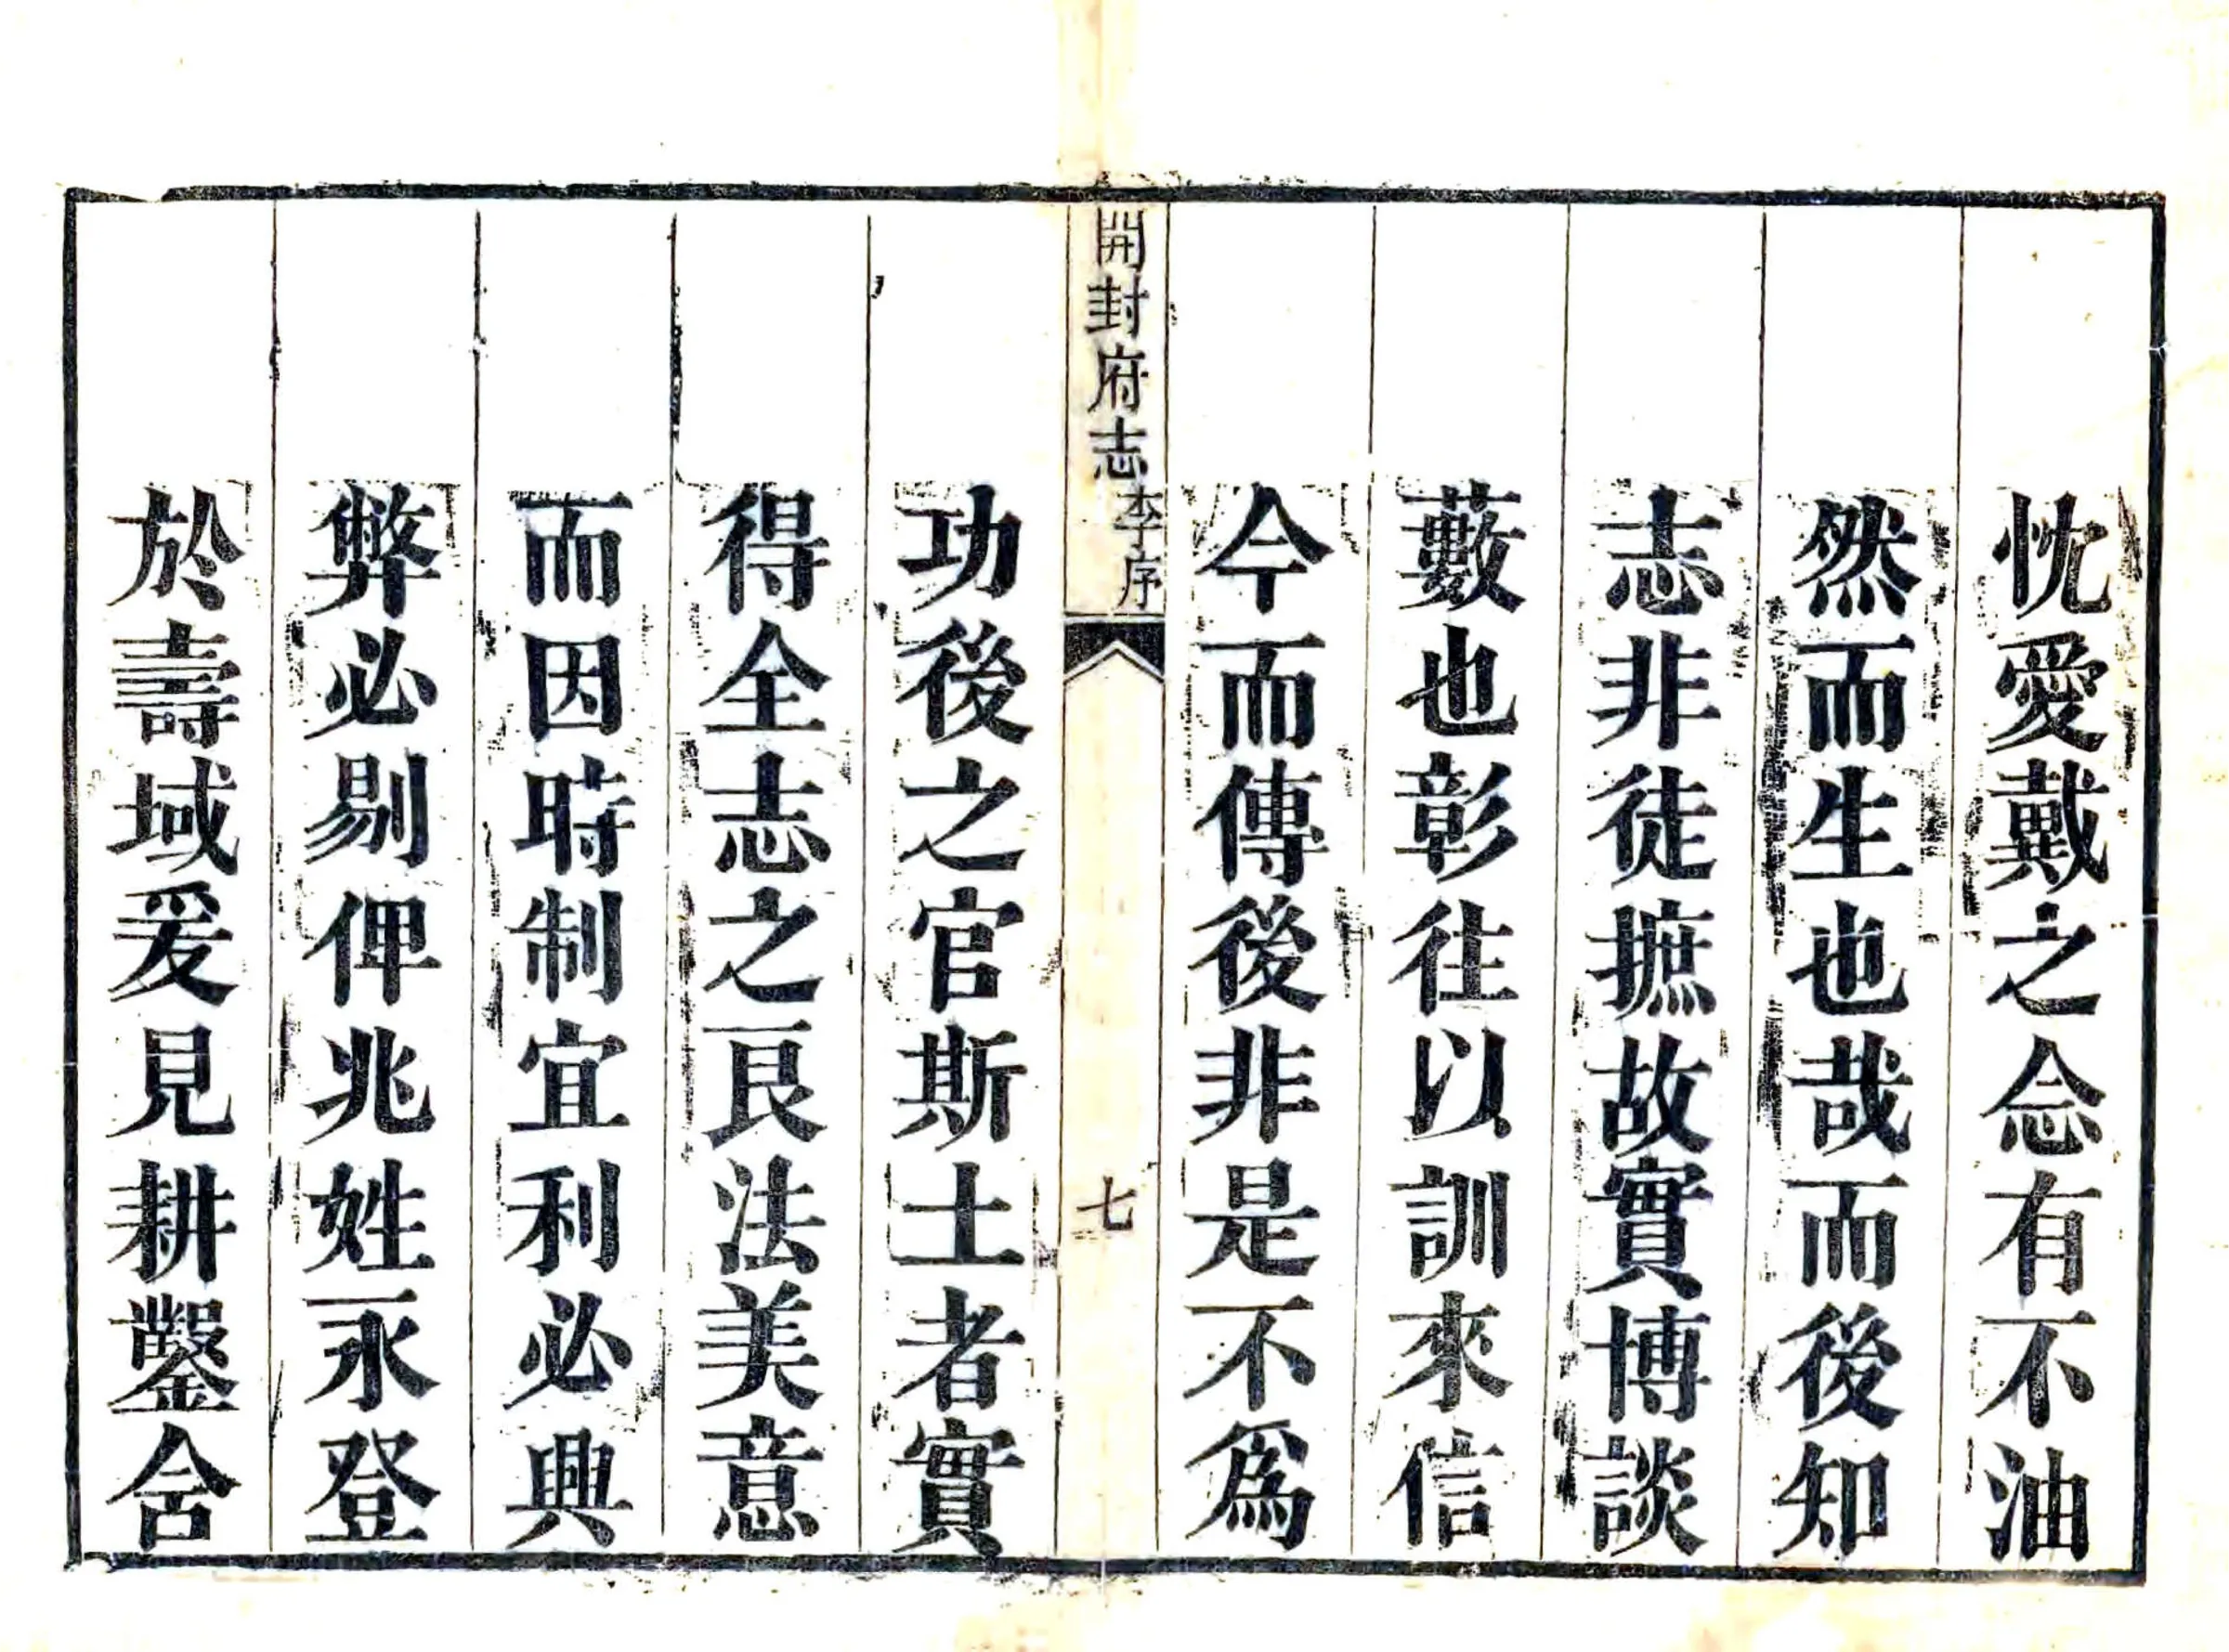 忱愛戴之念有不油
然而生也哉而後知
志非徒摭故實博談
藪也彰往以訓來信
今而傳後非是不爲
開封府志 李序 七
功後之官斯土者實
得全志之良法美意
而因時制宜利必興
弊必剔俾兆姓永登
於壽域爰見耕鑿舍